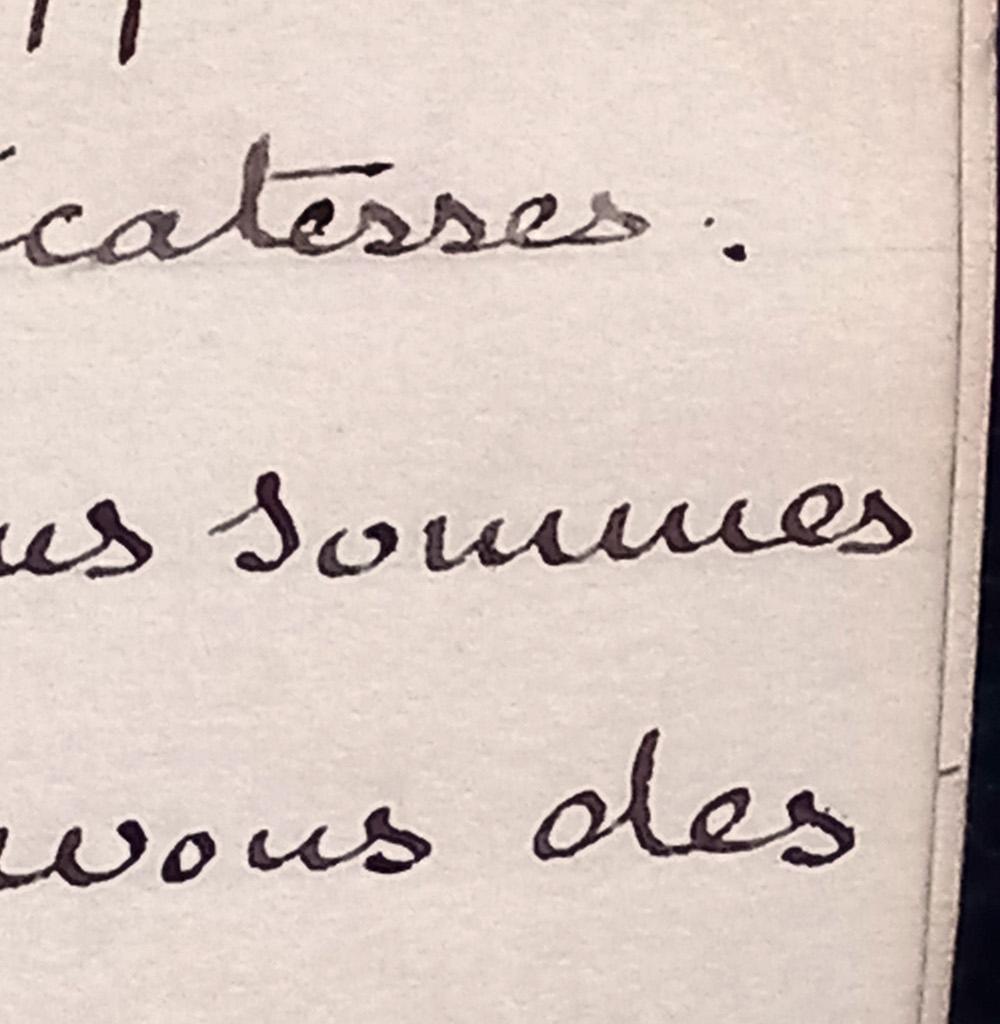 icatesses.
us sommes
avons des